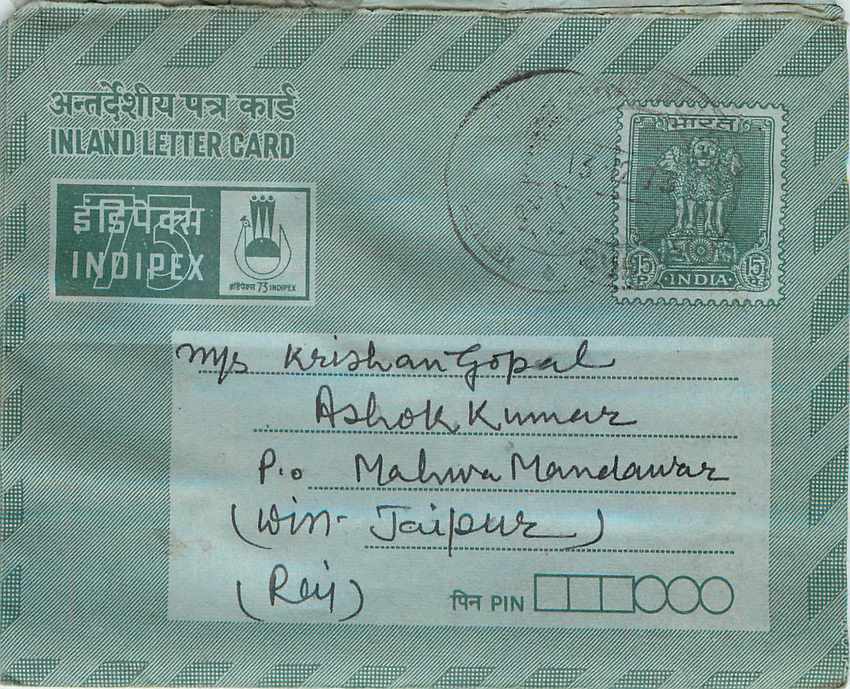 अन्तर्देशीय पत्र कार्ड
INLAND LETTER CARD
75
इंडिपेक्स
INDIPEX
इंडिपेक्स 73 INDIPEX
भारत
15 P. INDIA 15 P.
M/s Krishan Gopal
Ashok Kumar
P.o Mahwa Mandawar
Jaipur)
(Raj)
पिन PIN